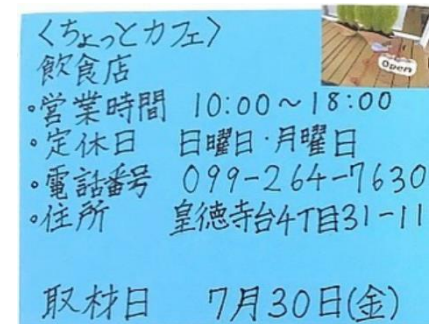 〈ちょっとカフェ〉
飲食店
Open
•営業時間 10:00～18:00
•定休日 日曜日・月曜日
•電話番号 099-264-7630
•住所 皇徳寺台4丁目31-11
取材日 7月30日(金)